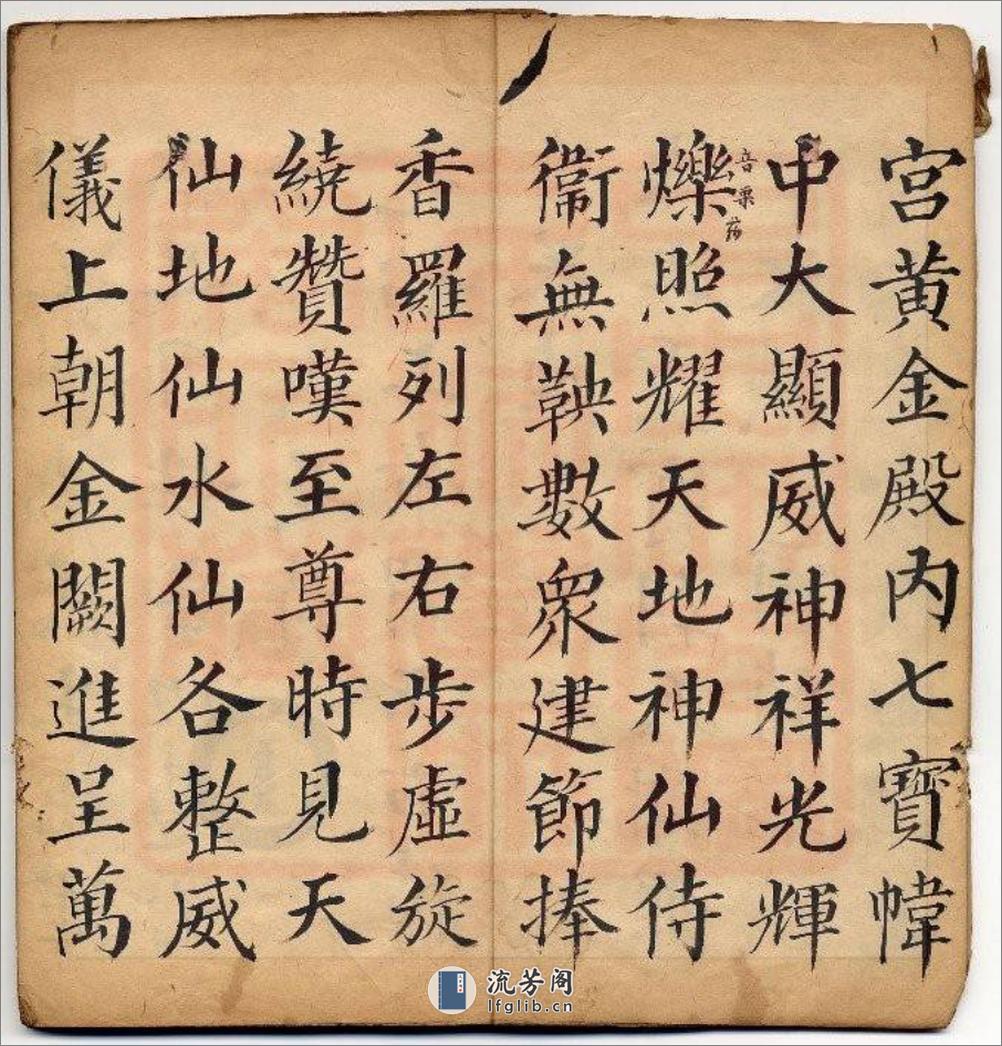 宫黄金殿內七寶幃
中大顯威神祥光輝
爍照耀天地神仙侍
音栗
衞無鞅數衆建節捧
香羅列左右步虛旋
繞贊嘆至尊時見天
仙地仙水仙各整威
儀上朝金闕進呈萬
流芳阁
lfglib.cn